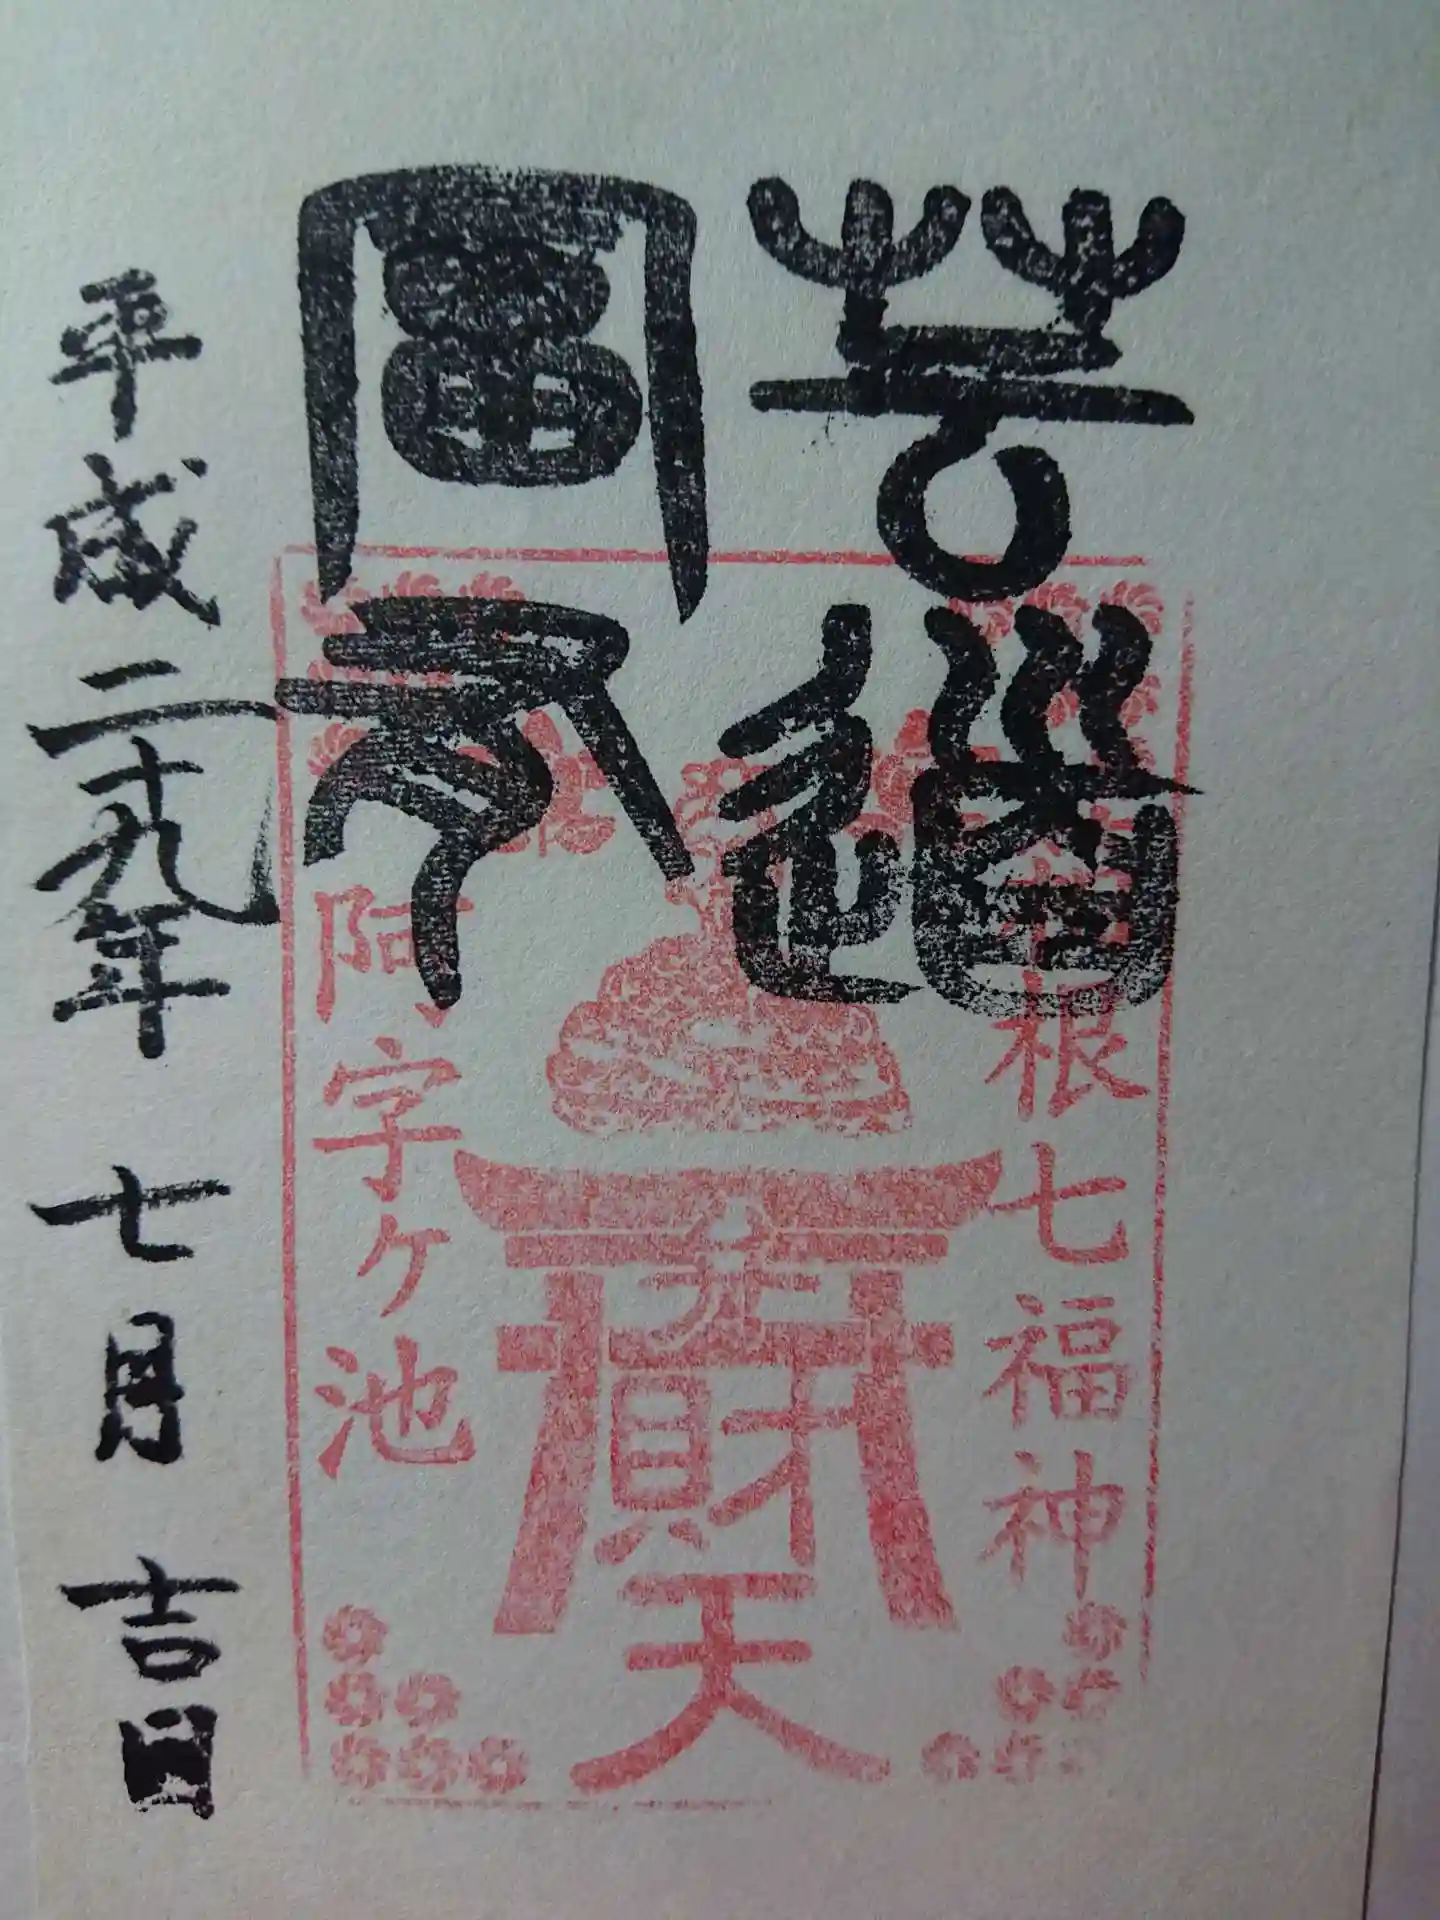 芸道
冨有
箱根七福神
財天
阿字ヶ池
平成二十九年 七月 吉日